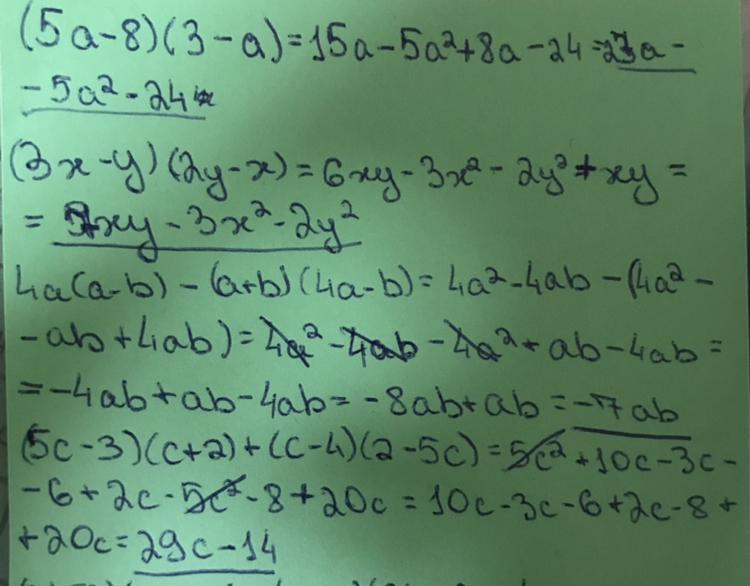 (5a-8)(3-a)=15a-5a²+8a-24=23a-
-5a²-24
(3x-y)(2y-x)=6xy-3x²-2y²+xy=
=7xy-3x²-2y²
4a(a-b)-(a+b)(4a-b)=4a²-4ab-(4a²-
-ab+4ab)=4a²-4ab-4a²+ab-4ab=
=-4ab+ab-4ab=-8ab+ab=-7ab
(5c-3)(c+2)+(c-4)(2-5c)=5c²+10c-3c-
-6+2c-5c²-8+20c=10c-3c-6+2c-8+
+20c=29c-14